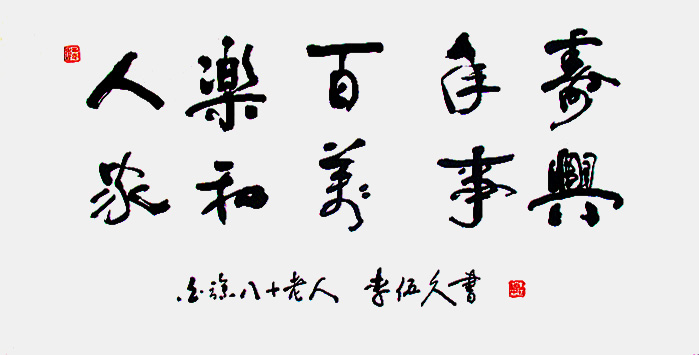 人樂百年寿
家和萬事興
白族八十老人 李伍久書